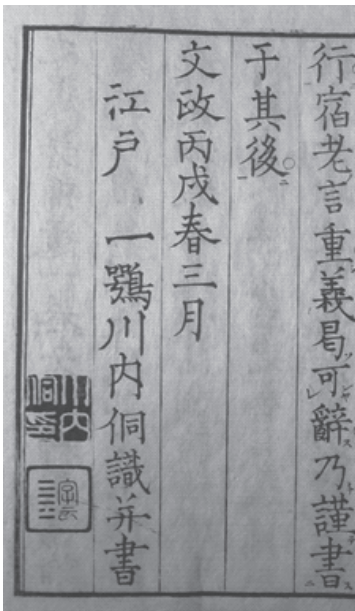 行宿老言重義曷可辭乃謹書
于其後
文政丙戌春三月
江戸 一鶚川内侗識并書
川内侗印